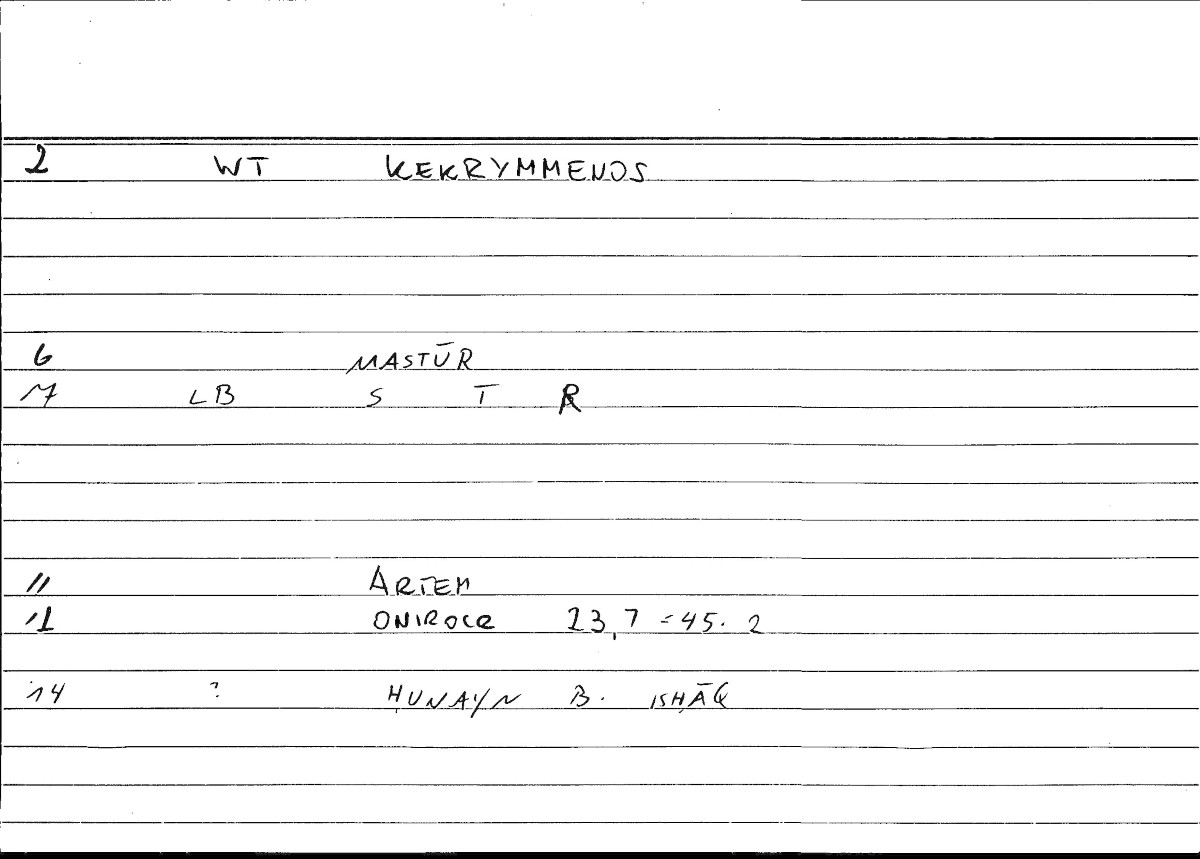 2 WT KEKRYMMENOS
6 MASTŪR
7 LB S T R
11 ARTEM
12 ONIROCR 23,7 = 45. 2
14 ? ḤUNAYN B. ISḤĀQ